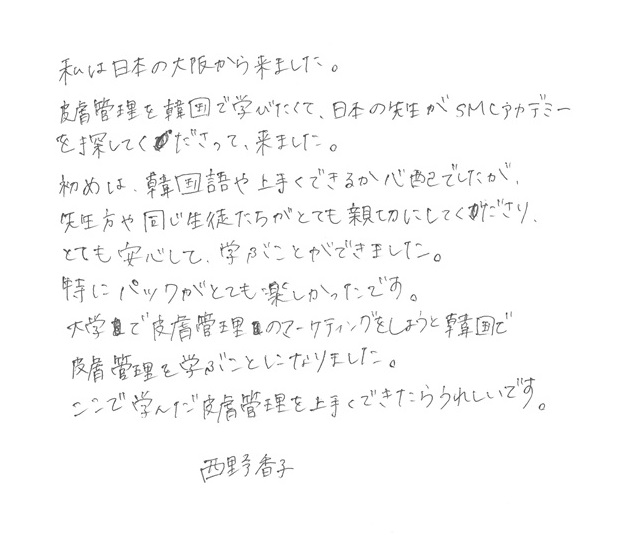 私は日本の大阪から来ました。
皮膚管理を韓国で学びたくて、日本の先生がSMCアカデミー
を探してくださって、来ました。
初めは、韓国語や上手くできるか心配でしたが、
先生方や同じ生徒たちがとても親切にしてくださり、
とても安心して、学ぶことができました。
特にパックがとても楽しかったです。
大学で皮膚管理のマーケティングをしようと韓国で
皮膚管理を学ぶことになりました。
ここで学んだ皮膚管理を上手くできたらうれしいです。
西野香子